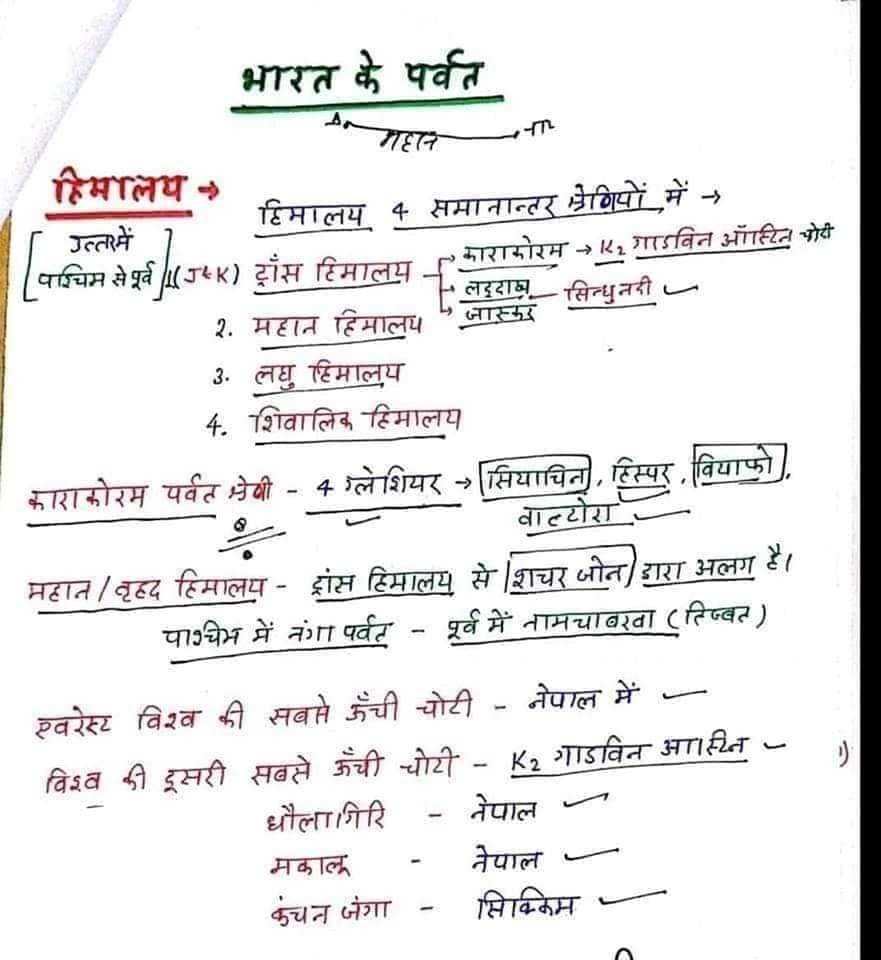 भारत के पर्वत
महान
हिमालय →
हिमालय 4 समानान्तर श्रेणियों में →
[उत्तर में
पाश्चिम से पूर्व]
1(J&K) ट्राँस हिमालय
काराकोरम → K2 गाडविन ऑस्टिन चोटी
लद्दाख — सिन्धु नदी
जास्कर
2. महान हिमालय
3. लघु हिमालय
4. शिवालिक हिमालय
काराकोरम पर्वत श्रेणी - 4 ग्लेशियर → सियाचिन, हिस्पर, वियाफो,
वाल्टोरा
महान / वृहद हिमालय - ट्रांस हिमालय से शचर जोन द्वारा अलग है।
पाश्चिम में नंगा पर्वत - पूर्व में नामचाबरवा (तिब्बत)
एवरेस्ट विश्व की सबसे ऊँची चोटी - नेपाल में
विश्व की दूसरी सबसे ऊँची चोटी - K2 गाडविन आस्टिन
धौलागिरि - नेपाल
मकालू - नेपाल
कंचन जंगा - सिक्किम